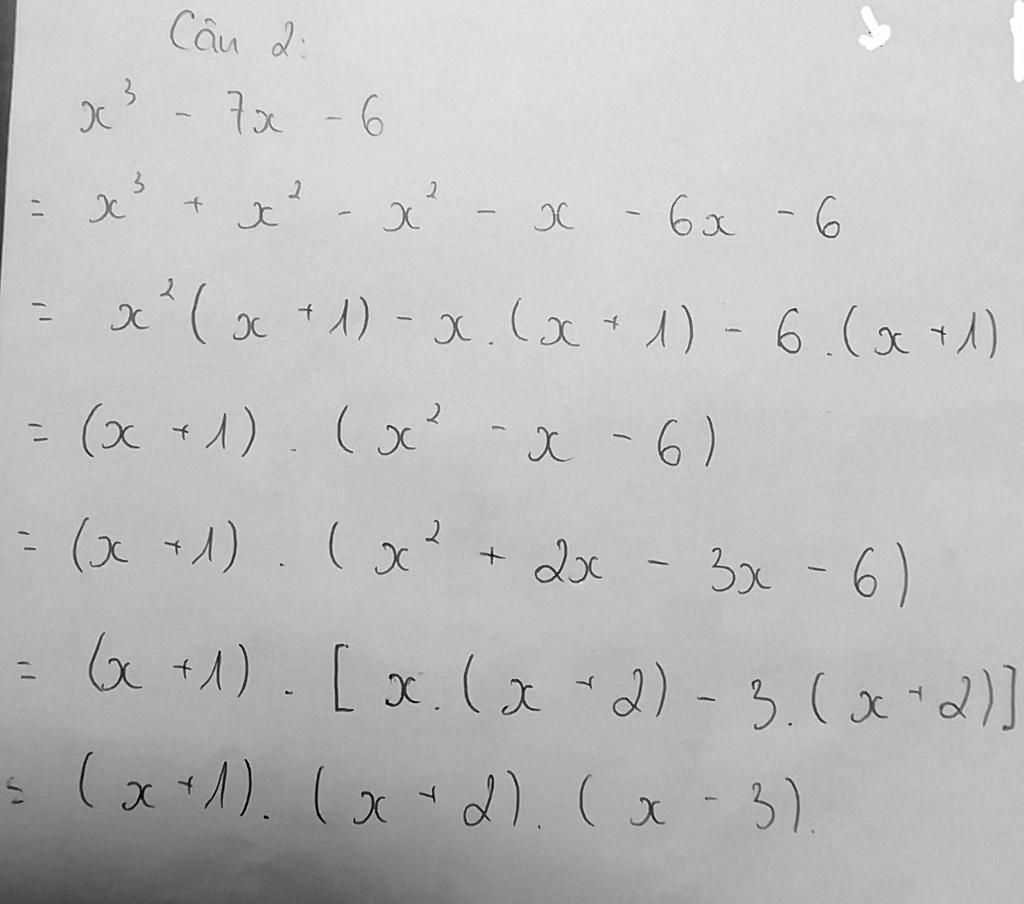 Câu 2:
x³ - 7x - 6
= x³ + x² - x² - x - 6x - 6
= x²(x + 1) - x.(x + 1) - 6.(x + 1)
= (x + 1).(x² - x - 6)
= (x + 1).(x² + 2x - 3x - 6)
= (x + 1).[x.(x + 2) - 3.(x + 2)]
= (x + 1).(x + 2).(x - 3).